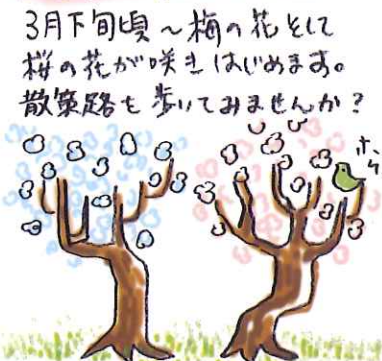 3月下旬頃～梅の花そして
桜の花が咲きはじめます。
散策路を歩いてみませんか？
ホケ